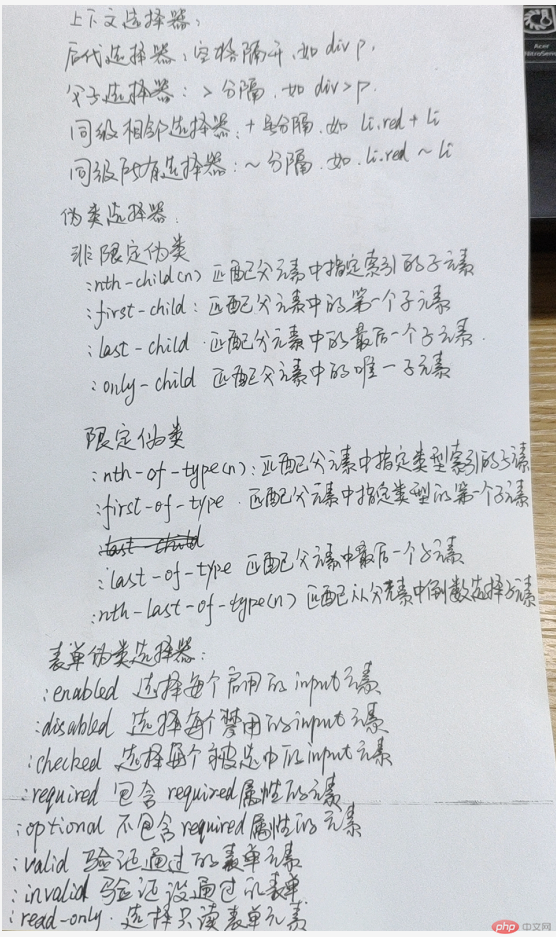 上下文选择器:
后代选择器:空格隔开.如 div p.
父子选择器:>分隔.如 div>p.
同级相邻选择器.+号分隔.如 li.red + li
同级所有选择器:~分隔.如.li.red ~ li
伪类选择器:
非限定伪类
:nth-child(n) 匹配父元素中指定索引的子元素
:first-child: 匹配父元素中的第一个子元素
:last-child.匹配父元素中的最后一个子元素.
:only-child 匹配父元素中的唯一子元素
限定伪类
:nth-of-type(n):匹配父元素中指定类型索引的子元素
:first-of-type.匹配父元素中指定类型的第一个子元素
:last-child
:last-of-type 匹配父元素中最后一个子元素
:nth-last-of-type(n) 匹配从父元素中倒数选择子元素
表单伪类选择器:
:enabled 选择每个启用的input元素
:disabled 选择每个禁用的input元素
:checked 选择每个被选中的input元素
:required 包含required属性的元素
:optional 不包含required属性的元素
:valid 验证通过的表单元素
:invalid 验证没通过的表单.
:read-only.选择只读表单元素
acer
php 中文网